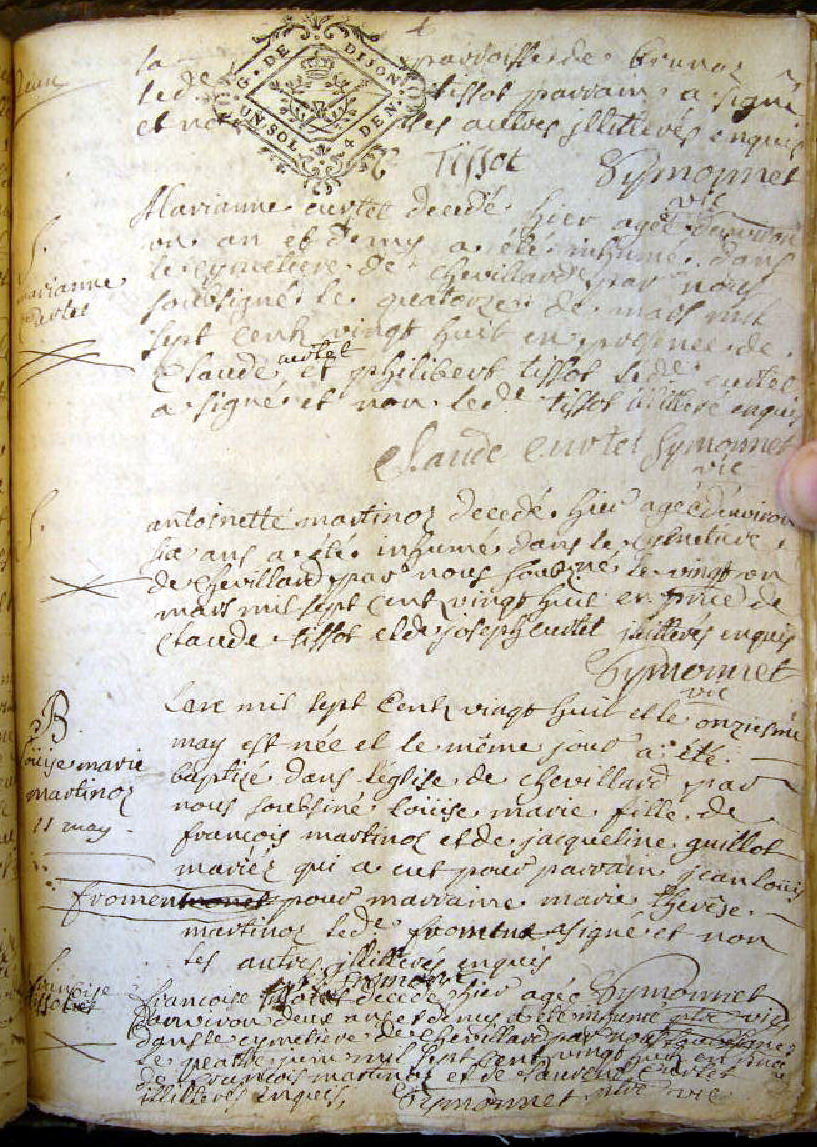 la parroisse de brenoz
led.e tissot parrain a signé
et non les autres illitterés enquis
G. DE DIJON
UN SOL 4 DEN
Tissot Symonnet
vic
Marianne curtet decedé hier ageé d'environ
un an et demy a été inhumé dans
le cymetiere de chevillard par nous
soubsigné le quatorze de mars mil
sept centz vingt huit en presence de
Claude curtet et philibert tissot led.e curtet
a signé et non led.e tissot illitteré enquis
S.
marianne
curtet
Claude Curtet Symonnet
vic
S.
antoinette martinoz decedé hier ageé d'environ
six ans a été inhumé dans le cymetiere
de chevillard par nous soubsigné le vingt un
mars mil sept centz vingt huit en p'nce de
Claude tissot et de joseph curtet illitterés enquis
Symonnet
vic
B
loüise marie
martinoz
11 may
Lan mil sept Centz vingt huit et le onziesme
may est née et le même jour a été
baptisé dans l'église de chevillard par
nous soubsiné loüise marie fille de
francois martinoz et de jacqueline guillot
mariez qui a eut pour parrain jean loüis
fromen pour marraine marie therèse
martinoz led.e froment a signé et non
les autres illitterés enquis
Symonnet
francoise
tissot
francoise tissot decedé hier ageé
d'environ deux ans et demys a été inhumé
dans le cymetiere de chevillard par nous soubsigné
le quatre juin mil sept Centz vingt huit en p'nce
de francois martinoz et de laurent Curtet
illitterés enquis, Symonnet vic